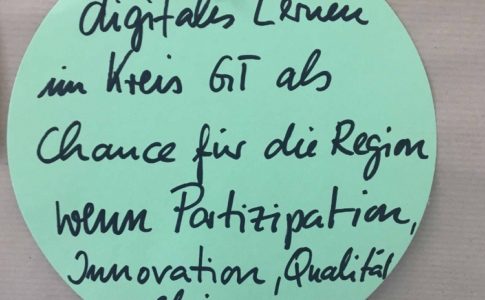 digitales Lernen
im Kreis GT als
Chance für die Region
wenn Partizipation,
Innovation, Qualität